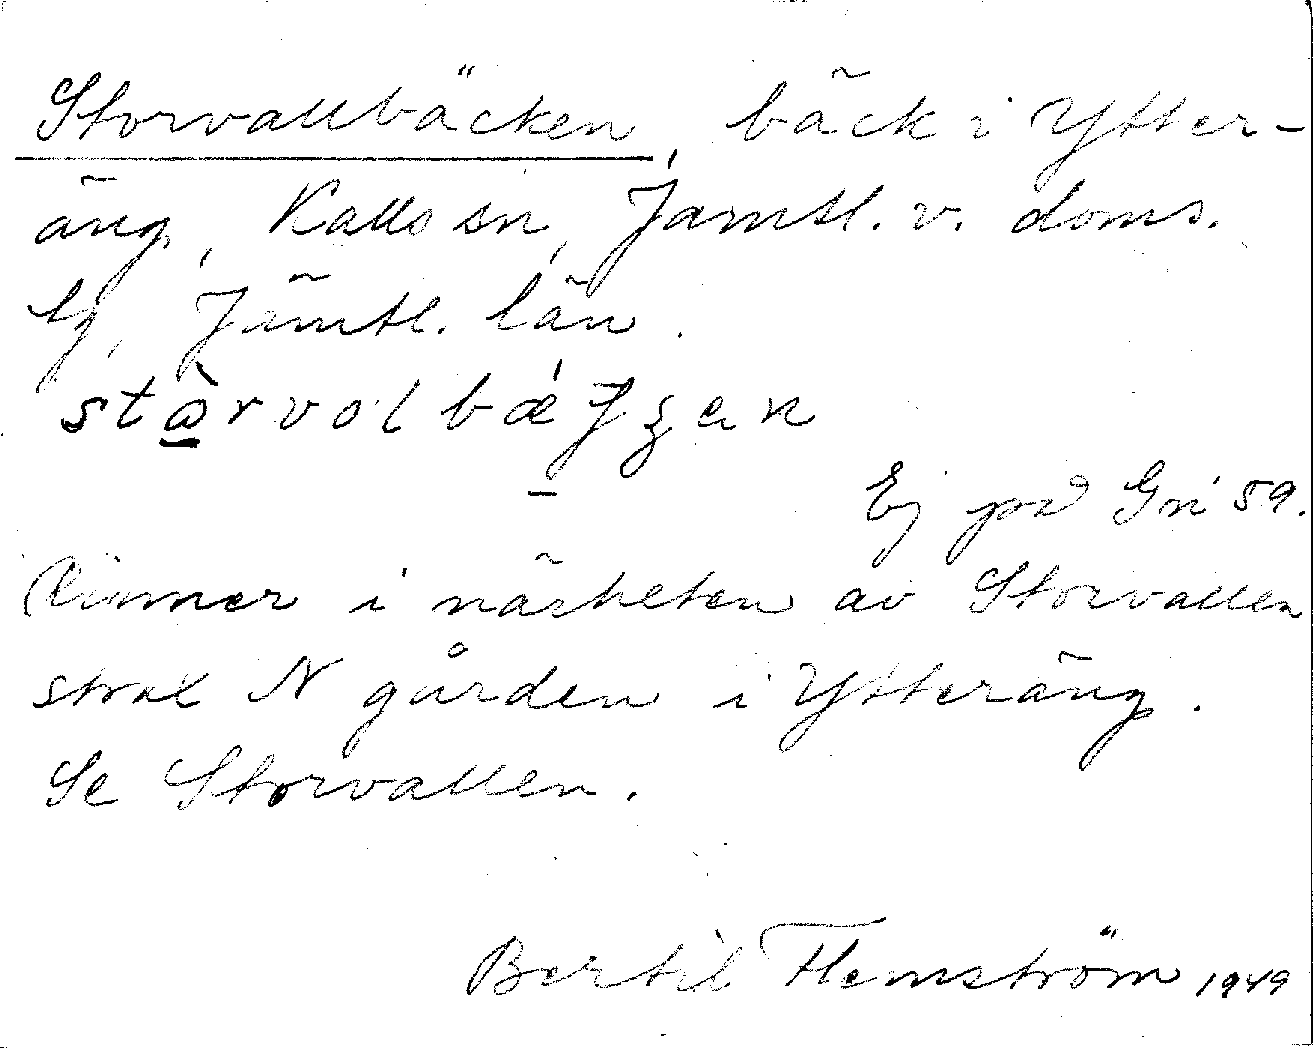 Storvallbäcken, bäck i Ytter-
äng, Kalls sn, Jämtl. v. doms.
Jämtl. län.
Ej på Gn 59.
Rinner i närheten av Storvallen
strax N gården i Ytteräng.
Se Storvallen.
Bertil Flemström 1949